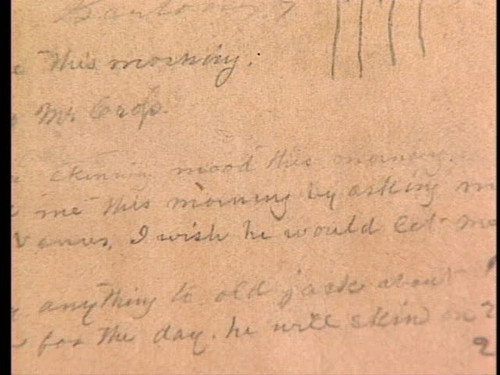 this morning.
Mr Crop.
skinning mood this morning
me this morning by asking m
, I wish he would let me
anything to old jack about
for the day. he will skin